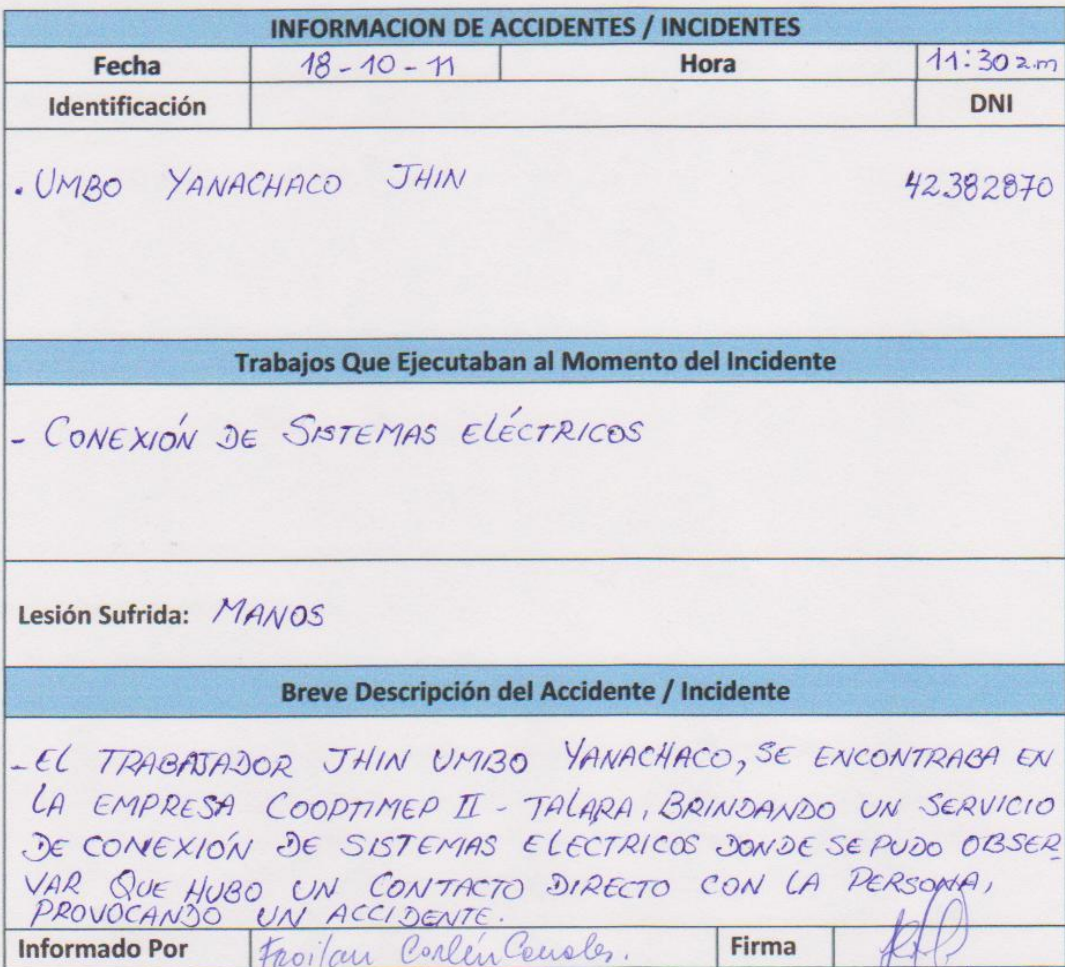 INFORMACION DE ACCIDENTES / INCIDENTES
Fecha 18-10-11 Hora 11:30 a.m
Identificación DNI
. UMBO YANACHACO JHIN 42382870
Trabajos Que Ejecutaban al Momento del Incidente
- CONEXIÓN DE SISTEMAS ELÉCTRICOS
Lesión Sufrida: MANOS
Breve Descripción del Accidente / Incidente
- EL TRABAJADOR JHIN UMBO YANACHACO, SE ENCONTRABA EN
LA EMPRESA COOPTIMEP II - TALARA, BRINDANDO UN SERVICIO
DE CONEXIÓN DE SISTEMAS ELECTRICOS DONDE SE PUDO OBSER
VAR QUE HUBO UN CONTACTO DIRECTO CON LA PERSONA,
PROVOCANDO UN ACCIDENTE.
Informado Por Froilan Firma